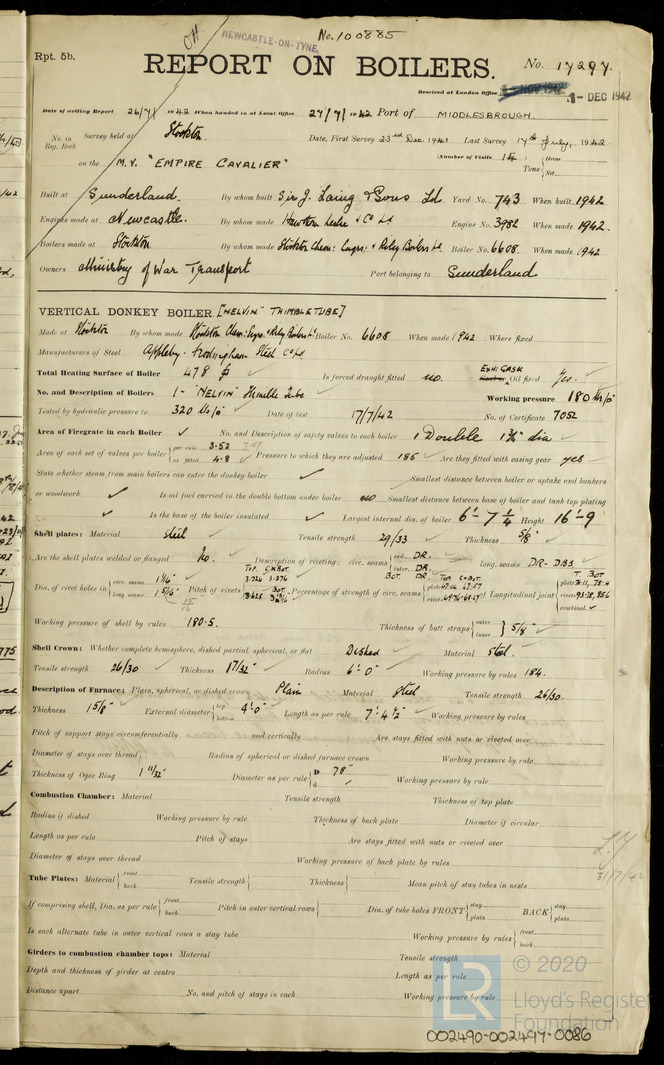 No. 100885
NEWCASTLE-ON-TYNE
Rpt. 5b.
REPORT ON BOILERS.
No. 17297.
Received at London Office
1- DEC 1942
Date of writing Report 26/7/1942 When handed in at Local Office 27/7/1942 Port of MIDDLESBROUGH.
No. in Reg. Book Survey held at Stockton. Date, First Survey 23rd Dec. 1941 Last Survey 17th July, 1942
(Number of Visits 14) Gross Tons Net
on the M.V. "EMPIRE CAVALIER"
Built at Sunderland. By whom built Sir J. Laing & Sons Ld Yard No. 743 When built 1942
Engines made at Newcastle. By whom made Hawthorn Leslie & Co Ld Engine No. 3982 When made 1942.
Boilers made at Stockton By whom made Stockton Chem: Engrs: & Riley Boilers Ld. Boiler No. 6608. When made 1942
Owners Ministry of War Transport Port belonging to Sunderland
VERTICAL DONKEY BOILER [MELVIN THIMBLETUBE]
Made at Stockton By whom made Stockton Chem: Engrs & Riley Boilers Ld Boiler No. 6608 When made 1942 Where fixed
Manufacturers of Steel Appleby-Frodingham Steel Co Ld
Total Heating Surface of Boiler 478 Is forced draught fitted no. Exh: Gas & Oil fired Yes.
No. and Description of Boilers 1- "MELVIN" Thimble Tube Working pressure 180 lb/□"
Tested by hydraulic pressure to 320 lb/□" Date of test 17/7/42 No. of Certificate 7052
Area of Firegrate in each Boiler ✓ No. and Description of safety valves to each boiler 1 Double 1¾" dia
Area of each set of valves per boiler per rule 3.52 as fitted 4.8 Pressure to which they are adjusted 185 Are they fitted with easing gear yes
State whether steam from main boilers can enter the donkey boiler ✓ Smallest distance between boiler or uptake and bunkers
or woodwork ✓ Is oil fuel carried in the double bottom under boiler no Smallest distance between base of boiler and tank top plating
✓ Is the base of the boiler insulated ✓ Largest internal dia. of boiler 6'-7¼" Height 16'-9
Shell plates: Material steel Tensile strength 29/33 Thickness 5/8"
Are the shell plates welded or flanged No. Description of riveting: circ. seams end DR. inter. DR. BOT. DR. long. seams DR-DBS
Dia. of rivet holes in circ. seams 1 1/16" long. seams Pitch of rivets Percentage of strength of circ. seams plate rivets Longitudinal joint plate rivets combined
Working pressure of shell by rules 180.5. Thickness of butt straps outer inner 5/8"
Shell Crown: Whether complete hemisphere, dished partial spherical, or flat Dished Material steel.
Tensile strength 26/30 Thickness 17/32" Radius 6'-0" Working pressure by rules 184.
Description of Furnace: Plain, spherical, or dished crown Plain Material steel Tensile strength 26/30.
Thickness 15/8" External diameter top bottom 4'.0" Length as per rule 7'.4½" Working pressure by rules
Pitch of support stays circumferentially and vertically Are stays fitted with nuts or riveted over
Diameter of stays over thread Radius of spherical or dished furnace crown Working pressure by rule
Thickness of Ogee Ring 1 11/32" Diameter as per rule D 78" d Working pressure by rule
Combustion Chamber: Material Tensile strength Thickness of top plate
Radius if dished Working pressure by rule Thickness of back plate Diameter if circular
Length as per rule Pitch of stays Are stays fitted with nuts or riveted over
Diameter of stays over thread Working pressure of back plate by rules
Tube Plates: Material front back Tensile strength Thickness Mean pitch of stay tubes in nests
If comprising shell, Dia. as per rule front back Pitch in outer vertical rows Dia. of tube holes FRONT stay plain BACK stay plain
Is each alternate tube in outer vertical rows a stay tube Working pressure by rules front back
Girders to combustion chamber tops: Material Tensile strength
Depth and thickness of girder at centre Length as per rule
Distance apart No. and pitch of stays in each Working pressure by rule
31/7/42
LR
© 2020
Lloyd's Register
Foundation
002490-002497-0086